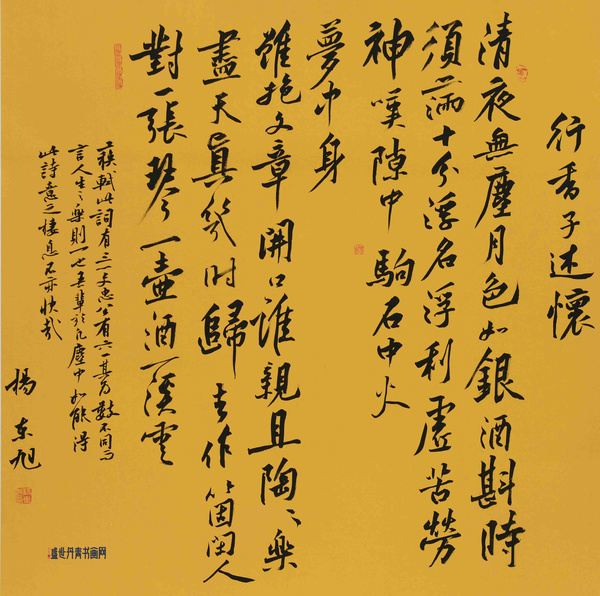 行香子述懷
清夜無塵月色如銀酒斟時
須滿十分浮名浮利虛苦勞
神嘆隙中駒石中火
夢中身
雖抱文章開口誰親且陶〻樂
盡天真幾時歸去作箇閑人
對一張琴一壺酒一溪雲
蘇軾此詞有三一文忠公有六一其為數不同而
言人生之樂則一也吾輩於凡塵中如能得
此詩意之棲息不亦快哉
楊东旭
盛世丹青书画网